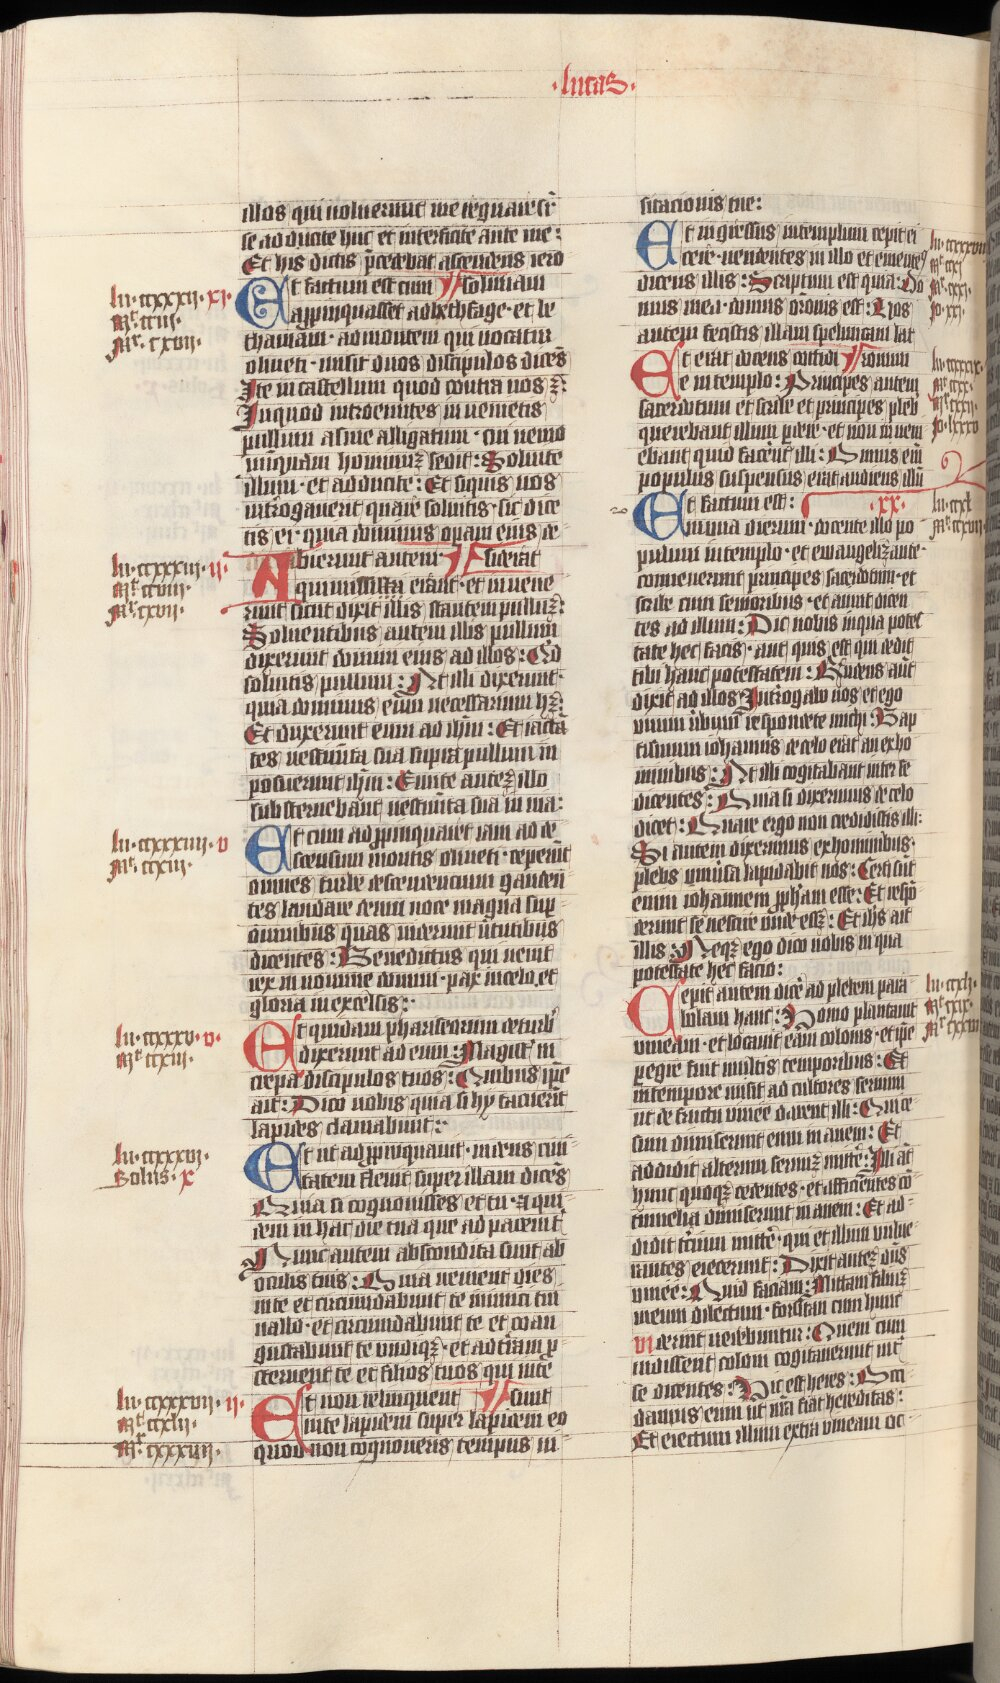 ·lucas·
illos qui noluerunt me regnare sr̄
se adducite huc et interficite ante me:
Et his dictis p̄cedebat ascendens iero
Et factum est cum solimam
lu·ccxxxii· xi·
Mr̄ ccvi·
Mr̄ cxvii·
appinquasset ad bethfage· et be
thaniam· ad montem qui vocatur
oliueti· misit duos discipulos dicēs
Ite in castellum quod contra uos ē:
In quod introeuntes inuenietis
pullum asine alligatum· cui nemo
unquam hominuꝫ sedit: Soluite
illum· et adducite: Et siquis uos
introgauerit quare soluitis· sic dice
tis ei· quia dominus opam eius de
lu·ccxxxiii· ii·
Mr̄ ccviii·
Mr̄ cxvii·
Abierunt autem siderat
qui missi erāt· et inuene
runt sicut dixit illis stantem pulluꝫ:
Soluentibus autem illis pullum
dixerunt domini eius ad illos: Quid
soluitis pullum: At illi dixerunt·
quia dominus eum necessarium hꝫ:
Et duxerunt eum ad ihm: Et iactā
tes uestimēta sua supra pullum im
posuerunt ihm: Eunte auteꝫ illo
substernebant uestimēta sua in uia:
lu·ccxxxiiii· v
Mr̄ ccxiii·
Et cum appinquaret iam ad de
scensum montis oliueti· ceperūt
omnes turbe descendencium gauden
tes laudare deum uoce magna sup
omnibus quas uiderunt uirtutibus
dicentes: Benedictus qui uenit
rex in nomine domini· pax in celo· et
gloria in excelsis:
lu·ccxxxv· v·
Mr̄ ccxiii·
Et quidam phariseorum de turb̄
dixerunt ad eum: Magist̄ in
crepa discipulos tuos: Quibus ip̄e
ait: Dico uobis quia si hy tacuerīt
lapides clamabunt:
lu·ccxxxvi·
Solus· x
Et ut appinquauit· uidens ciui
tatem fleuit super illam dicēs
Quia si cognouisses et tu· et qui
dem in hac die tua que ad pacem t̄
Nunc autem abscondita sunt ab
oculis tuis: Quia uenient dies
in te et circumdabunt te inimici tui
uallo· et circumdabunt te et coan
gustabunt te undiqꝫ· et ad t̄ram p
sternent te et filios tuos qui in te
lu·ccxxxvii· ii·
Mr̄ ccxlii·
Mr̄ cxxxvii·
Et non relinquent sunt
in te lapidem super lapidem eo
quod non cognoueris tempus ui
sitacionis tue:
Et ingressus in templum cepit ei
cere· uendentes in illo et ementes
dicens illis: Scriptum est quia· Do
mus mea· domus or̄onis est: Uos
autem fecistis illam speluncam lat
Et erat docens cotidi ronum
e in templo: Principes autem
sacerdotum et scribe et principes pleb̄
querebant illum p̄dere· et non inueni
ebant quid facerēt illi: Omnis eīm
populus suspensus erat audiens illū
Et factum est: ·xx·
in una dierum· docente illo po
pulum in templo· et ewangelizante·
conuenerunt principes sacerdotum· et
scribe cum senioribus· et aiunt dicen
tes ad illum: Dic nobis in qua potes
tate hec facis· aut quis est qui dedit
tibi hanc potestatem: Rn̄dens aūt
dixit ad illos Introgabo uos et ego
unum ūbum· respondete michi: Bap
tismum iohannis de celo erat an ex ho
minibus: At illi cogitabant inter se
dicentes: Quia si dixerimus de celo
dicet: Quare ergo non credidistis illi:
Si autem dixerimus ex hominibus·
plebs uniūsa lapidabit nos: Certi sūt
enim iohannem p̄ph̄am esse: Et respō
derunt se nescire unde esꝫ: Et ihs ait
illis: Neqꝫ ego dico uobis in qua
potestate hec facio:
Cepit autem dic̄e ad plebem para
bolam hanc: Homo plantauit
uineam· et locauit eam colonis· et ip̄e
peḡre fuit multis temporibus: Et
in tempore misit ad cultores seruum
ut de fructu uinee darent illi: Qui ce
sum dimiserunt eum inanem: Et
addidit alterum seruuꝫ mitt̄e: Illi aūt
hunc quoqꝫ cedentes· et afficientes cō
tumelia dimiserunt inanem: Et ad
didit t̄cium mitt̄e· qui et illum uulne
rantes eiecerunt: Dixit auteꝫ dn̄s
uinee: Quid faciam: Mittam filiuꝫ
meum dilectum· forsitan cum hunc
uiderint uerebuntur: Quem cum
uidissent coloni cogitauerunt int̄
se dicentes: Hic est heres: Occi
damus eum ut nr̄a fiat hereditas:
Et eiectum illum extra uineam oc